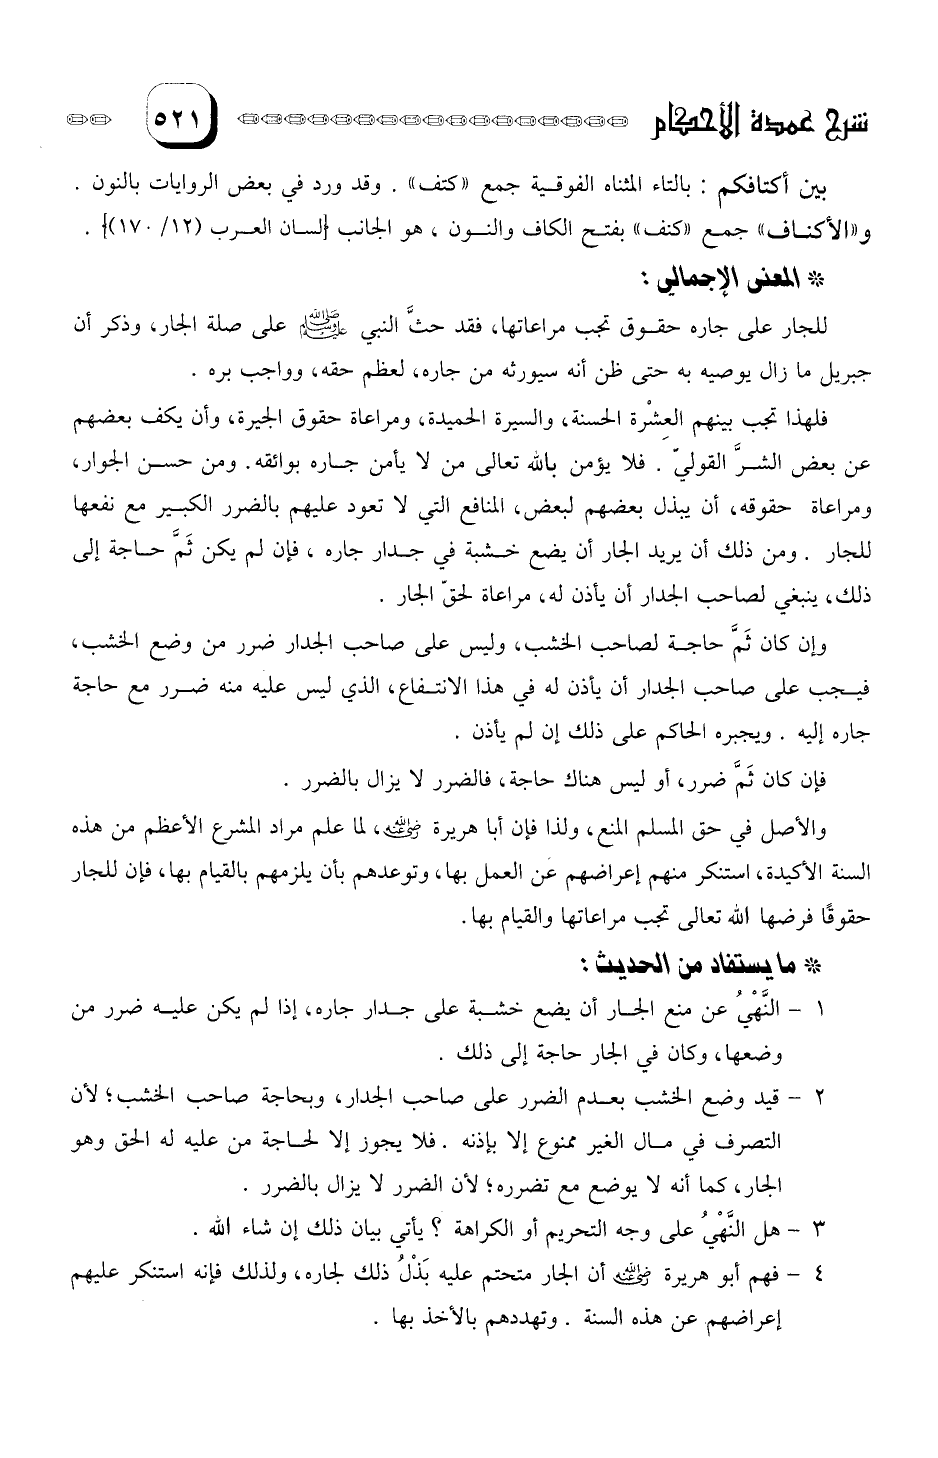 شرح عمدة الأحكام ٥٢١
بين أكتافكم : بالتاء المثناه الفوقية جمع «كتف» . وقد ورد في بعض الروايات بالنون .
و«الأكناف» جمع «كنف» بفتح الكاف والنون ، هو الجانب {لسان العرب (١٢/ ١٧٠)} .
* المعنى الإجمالي :
للجار على جاره حقوق تجب مراعاتها، فقد حثَّ النبي ﷺ على صلة الجار، وذكر أن
جبريل ما زال يوصيه به حتى ظن أنه سيورثه من جاره، لعظم حقه، وواجب بره .
فلهذا تجب بينهم العشْرة الحسنة، والسيرة الحميدة، ومراعاة حقوق الجيرة، وأن يكف بعضهم
عن بعض الشرَّ القوليّ . فلا يؤمن بالله تعالى من لا يأمن جاره بوائقه. ومن حسن الجوار،
ومراعاة حقوقه، أن يبذل بعضهم لبعض، المنافع التي لا تعود عليهم بالضرر الكبير مع نفعها
للجار . ومن ذلك أن يريد الجار أن يضع خشبة في جدار جاره ، فإن لم يكن ثَمَّ حاجة إلى
ذلك، ينبغي لصاحب الجدار أن يأذن له، مراعاة لحقّ الجار .
وإن كان ثَمَّ حاجة لصاحب الخشب، وليس على صاحب الجدار ضرر من وضع الخشب،
فيجب على صاحب الجدار أن يأذن له في هذا الانتفاع، الذي ليس عليه منه ضرر مع حاجة
جاره إليه . ويجبره الحاكم على ذلك إن لم يأذن .
فإن كان ثَمَّ ضرر، أو ليس هناك حاجة، فالضرر لا يزال بالضرر .
والأصل في حق المسلم المنع، ولذا فإن أبا هريرة رضي الله عنه، لما علم مراد المشرع الأعظم من هذه
السنة الأكيدة، استنكر منهم إعراضهم عن العمل بها، وتوعدهم بأن يلزمهم بالقيام بها، فإن للجار
حقوقًا فرضها الله تعالى تجب مراعاتها والقيام بها.
* ما يستفاد من الحديث :
١ - النَّهْيُ عن منع الجار أن يضع خشبة على جدار جاره، إذا لم يكن عليه ضرر من
وضعها، وكان في الجار حاجة إلى ذلك .
٢ - قيد وضع الخشب بعدم الضرر على صاحب الجدار، وبحاجة صاحب الخشب؛ لأن
التصرف في مال الغير ممنوع إلا بإذنه . فلا يجوز إلا لحاجة من عليه له الحق وهو
الجار، كما أنه لا يوضع مع تضرره؛ لأن الضرر لا يزال بالضرر .
٣ - هل النَّهْيُ على وجه التحريم أو الكراهة ؟ يأتي بيان ذلك إن شاء الله .
٤ - فهم أبو هريرة رضي الله عنه أن الجار متحتم عليه بَذْلُ ذلك لجاره، ولذلك فإنه استنكر عليهم
إعراضهم عن هذه السنة . وتهددهم بالأخذ بها .